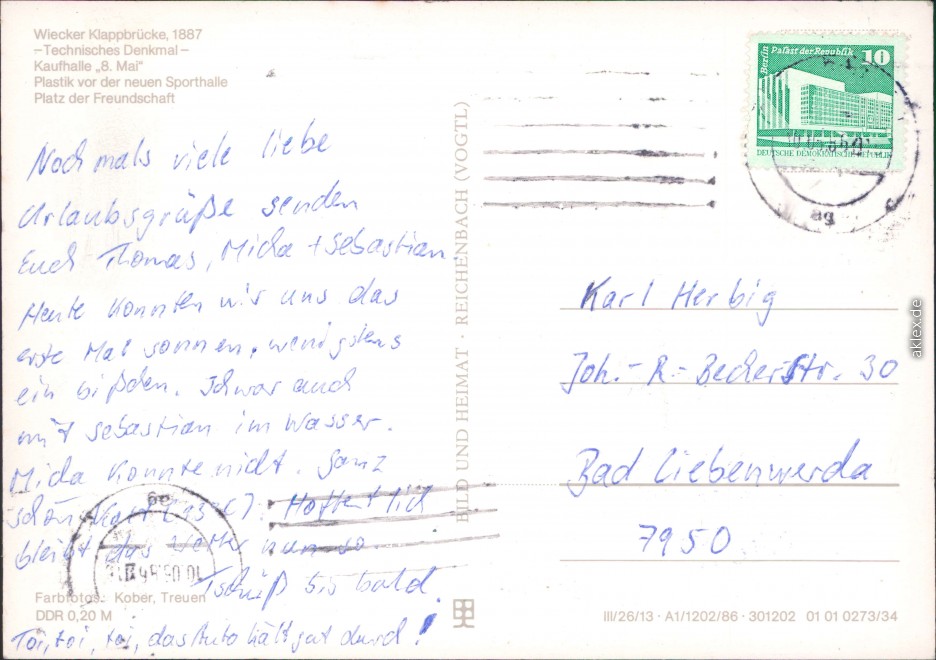 Wiecker Klappbrücke, 1887
–Technisches Denkmal–
Kaufhalle „8. Mai"
Plastik vor der neuen Sporthalle
Platz der Freundschaft
Nochmals viele liebe
Urlaubsgrüße senden
Euch Thomas, Micha + Sebastian.
Heute konnten wir uns das
erste Mal sonnen, wenigstens
ein bißchen. Ich war auch
mit Sebastian im Wasser.
Micha konnte nicht. Ganz
schön kalt (13°C). Hoffentlich
bleibt das Wetter nun so.
Tschüß bis bald.
Farbfotos: Kober, Treuen
DDR 0,20 M
Toi, toi, toi, das Auto hält gut durch!
BILD UND HEIMAT · REICHENBACH (VOGTL)
Berlin Palast der Republik 10
DEUTSCHE DEMOKRATISCHE REPUBLIK
Karl Herbig
Joh.-R.-Becherstr. 30
Bad Liebenwerda
7950
III/26/13 · A1/1202/86 · 301202 01 01 0273/34
aklex.de